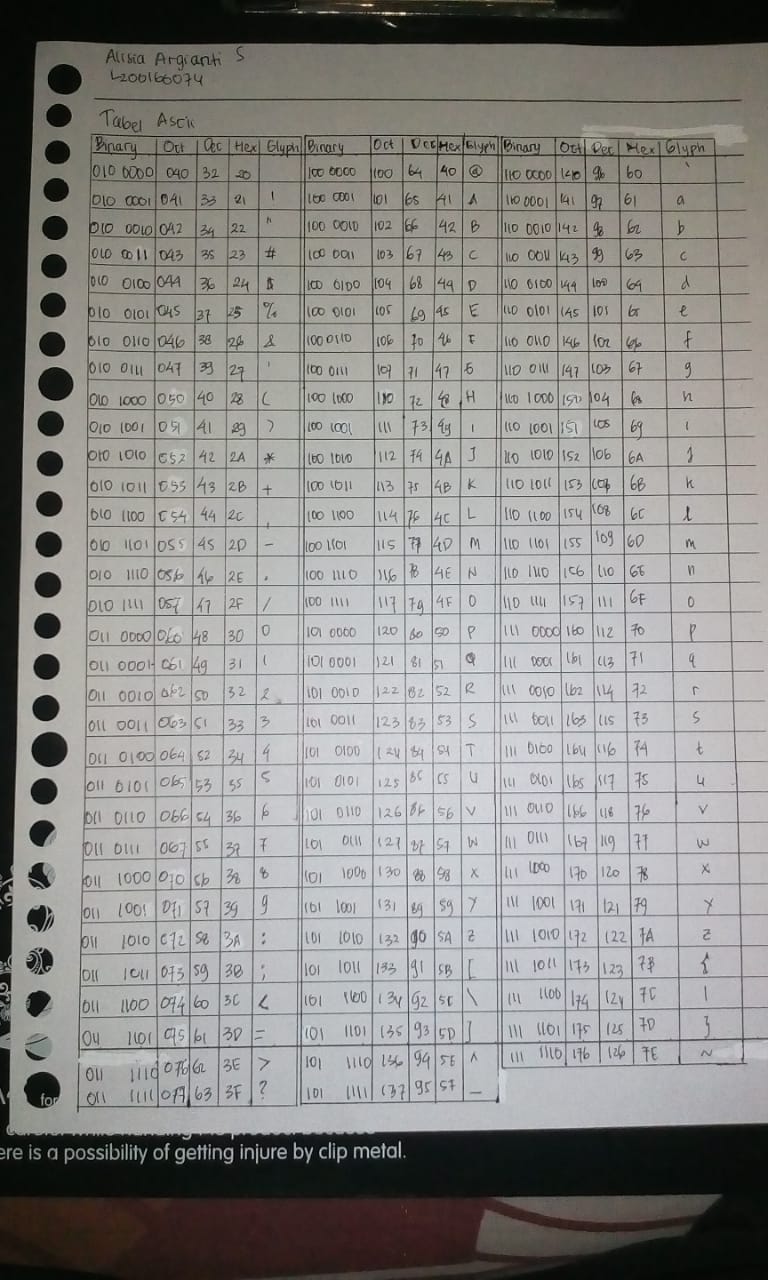 Alisia Argianti S
L200160074
Tabel Ascii
Binary Oct Dec Hex Glyph Binary Oct Dec Hex Glyph Binary Oct Dec Hex Glyph
010 0000 040 32 20 100 0000 100 64 40 @ 110 0000 140 96 60 `
010 0001 041 33 21 ! 100 0001 101 65 41 A 110 0001 141 97 61 a
010 0010 042 34 22 " 100 0010 102 66 42 B 110 0010 142 98 62 b
010 0011 043 35 23 # 100 0011 103 67 43 C 110 0011 143 99 63 c
010 0100 044 36 24 $ 100 0100 104 68 44 D 110 0100 144 100 64 d
010 0101 045 37 25 % 100 0101 105 69 45 E 110 0101 145 101 65 e
010 0110 046 38 26 & 100 0110 106 70 46 F 110 0110 146 102 66 f
010 0111 047 39 27 ' 100 0111 107 71 47 G 110 0111 147 103 67 g
010 1000 050 40 28 ( 100 1000 110 72 48 H 110 1000 150 104 68 h
010 1001 051 41 29 ) 100 1001 111 73 49 I 110 1001 151 105 69 i
010 1010 052 42 2A * 100 1010 112 74 4A J 110 1010 152 106 6A j
010 1011 053 43 2B + 100 1011 113 75 4B K 110 1011 153 6B k
010 1100 054 44 2C , 100 1100 114 76 4C L 110 1100 154 108 6C l
010 1101 055 45 2D - 100 1101 115 77 4D M 110 1101 155 109 6D m
010 1110 056 46 2E . 100 1110 116 78 4E N 110 1110 156 110 6E n
010 1111 057 47 2F / 100 1111 117 79 4F O 110 1111 157 111 6F o
011 0000 060 48 30 0 101 0000 120 80 50 P 111 0000 160 112 70 p
011 0001 061 49 31 1 101 0001 121 81 51 Q 111 0001 161 113 71 q
011 0010 062 50 32 2 101 0010 122 82 52 R 111 0010 162 114 72 r
011 0011 063 51 33 3 101 0011 123 83 53 S 111 0011 163 115 73 s
011 0100 064 52 34 4 101 0100 124 84 54 T 111 0100 164 116 74 t
011 0101 065 53 35 5 101 0101 125 85 55 U 111 0101 165 117 75 u
011 0110 066 54 36 6 101 0110 126 86 56 V 111 0110 166 118 76 v
011 0111 067 55 37 7 101 0111 127 87 57 W 111 0111 167 119 77 w
011 1000 070 56 38 8 101 1000 130 88 58 X 111 1000 170 120 78 x
011 1001 071 57 39 9 101 1001 131 89 59 Y 111 1001 171 121 79 y
011 1010 072 58 3A : 101 1010 132 90 5A Z 111 1010 172 122 7A z
011 1011 073 59 3B ; 101 1011 133 91 5B [ 111 1011 173 123 7B {
011 1100 074 60 3C < 101 1100 134 92 5C \ 111 1100 174 124 7C |
011 1101 075 61 3D = 101 1101 135 93 5D ] 111 1101 175 125 7D }
011 1110 076 62 3E > 101 1110 136 94 5E ^ 111 1110 176 126 7E ~
011 1111 077 63 3F ? 101 1111 137 95 5F _
for
ere is a possibility of getting injure by clip metal.